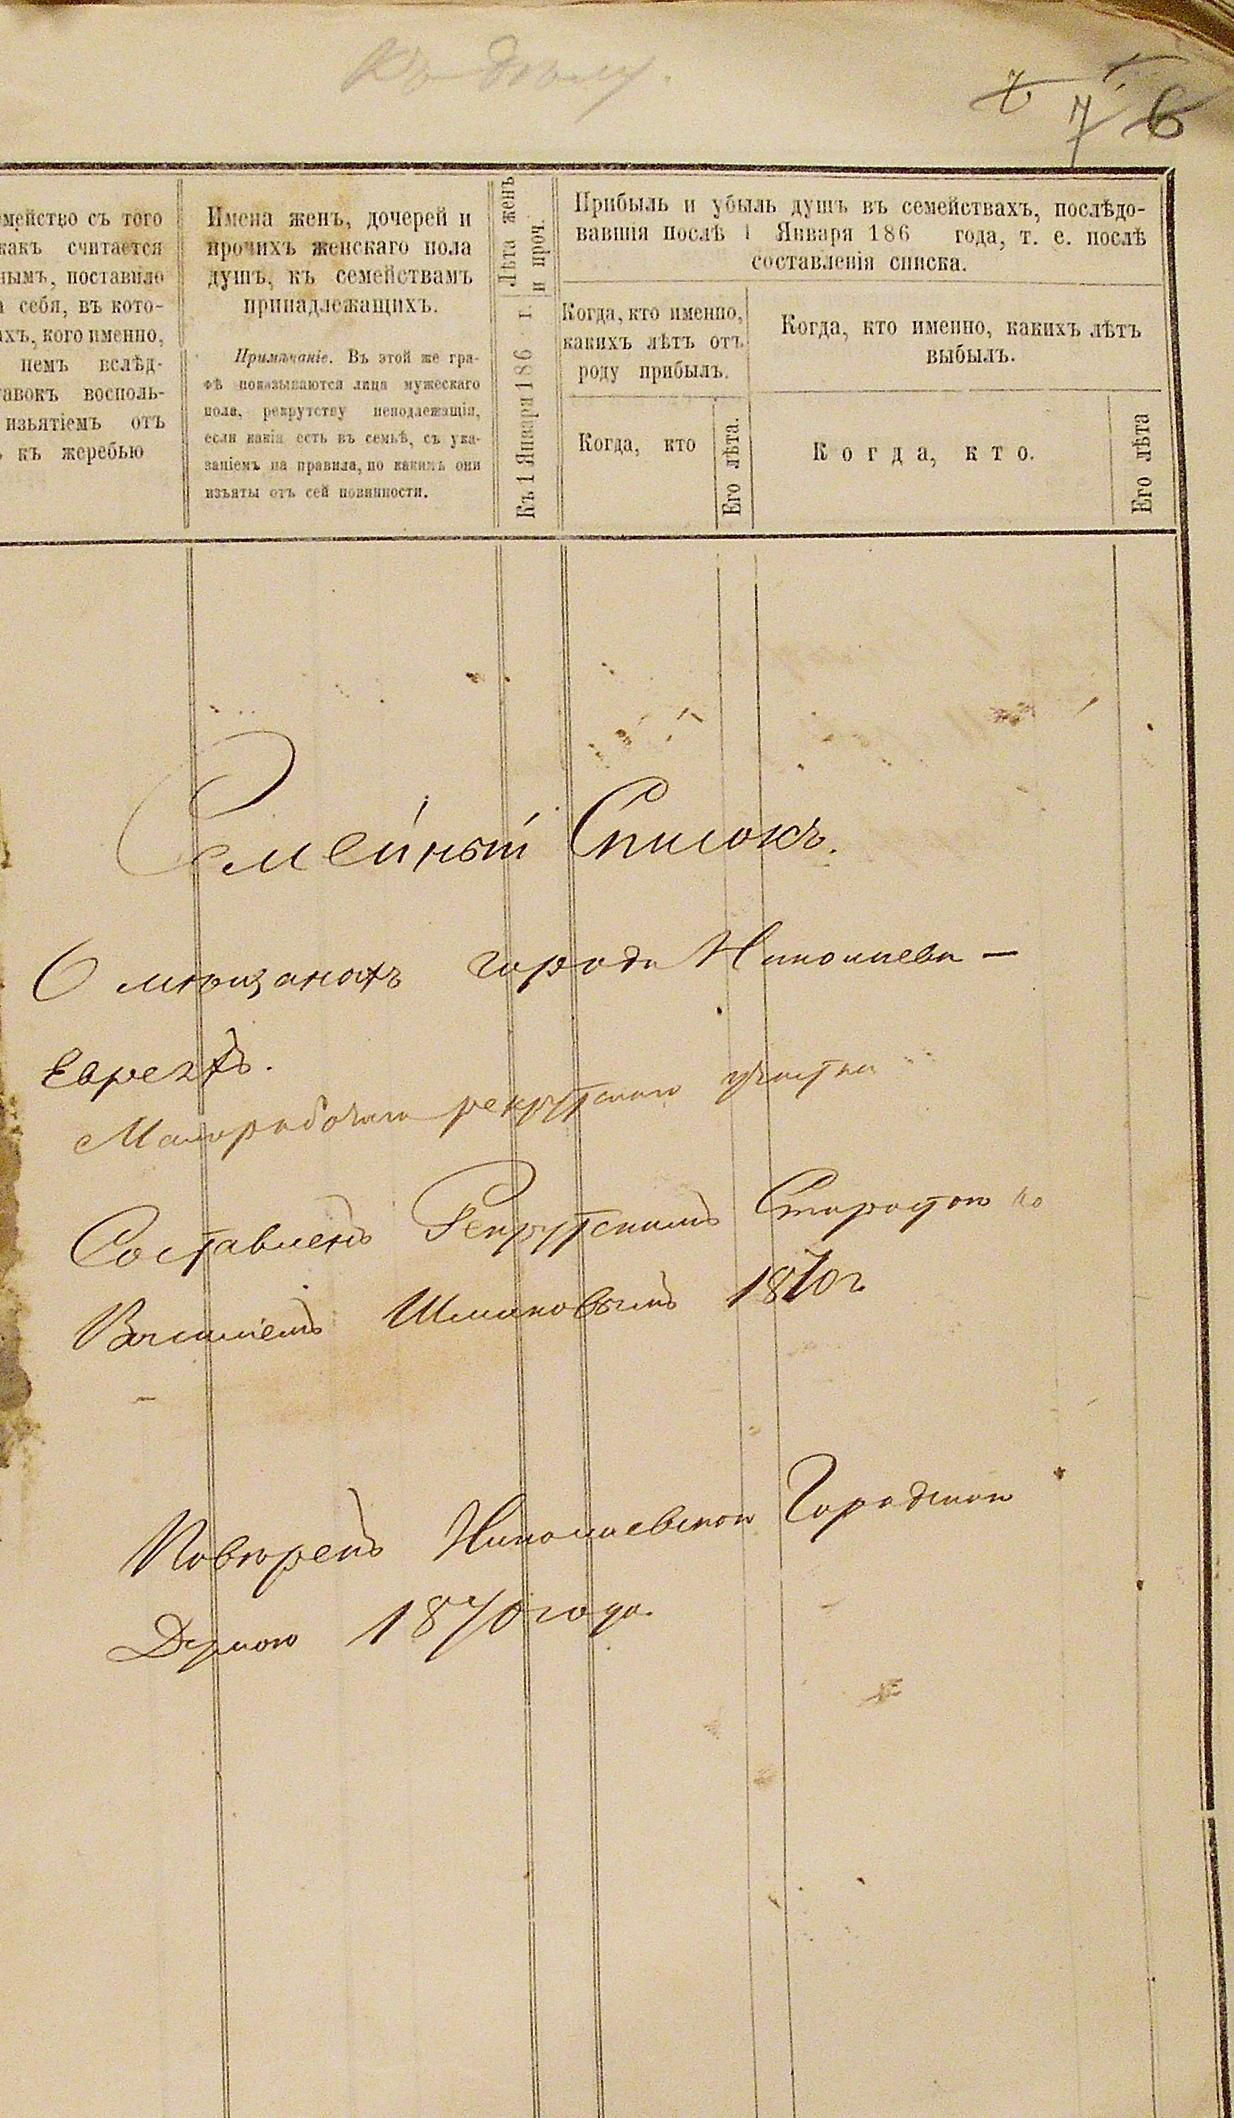 Къ дѣлу.
7 6
мейство съ того
какъ считается
нымъ, поставило
а себя, въ кото-
ахъ, кого именно,
немъ вслѣд-
тавокъ восполь-
изъятіемъ отъ
ъ къ жеребью
Имена женъ, дочерей и
прочихъ женскаго пола
душъ, къ семействамъ
принадлежащихъ.
Примѣчаніе. Въ этой же гра-
фѣ показываются лица мужескаго
пола, рекрутству неподлежащія,
если какія есть въ семьѣ, съ ука-
заніемъ на правила, по какимъ они
изъяты отъ сей повинности.
Лѣта женъ
и проч.
Къ 1 Января 186 г.
Прибыль и убыль душъ въ семействахъ, послѣдо-
вавшія послѣ 1 Января 186 года, т. е. послѣ
составленія списка.
Когда, кто именно,
какихъ лѣтъ отъ
роду прибылъ.
Когда, кто
Его лѣта.
Когда, кто именно, какихъ лѣтъ
выбылъ.
Когда, кто.
Его лѣта
Семейный Списокъ.
О мѣщанахъ города Николаева —
Евреяхъ.
рекрутскаго участка
Составленъ Рекрутскимъ Старостою
Василіемъ Шмаковымъ 1870 г
Повѣренъ Николаевскою Городскою
Думою 1870 года.